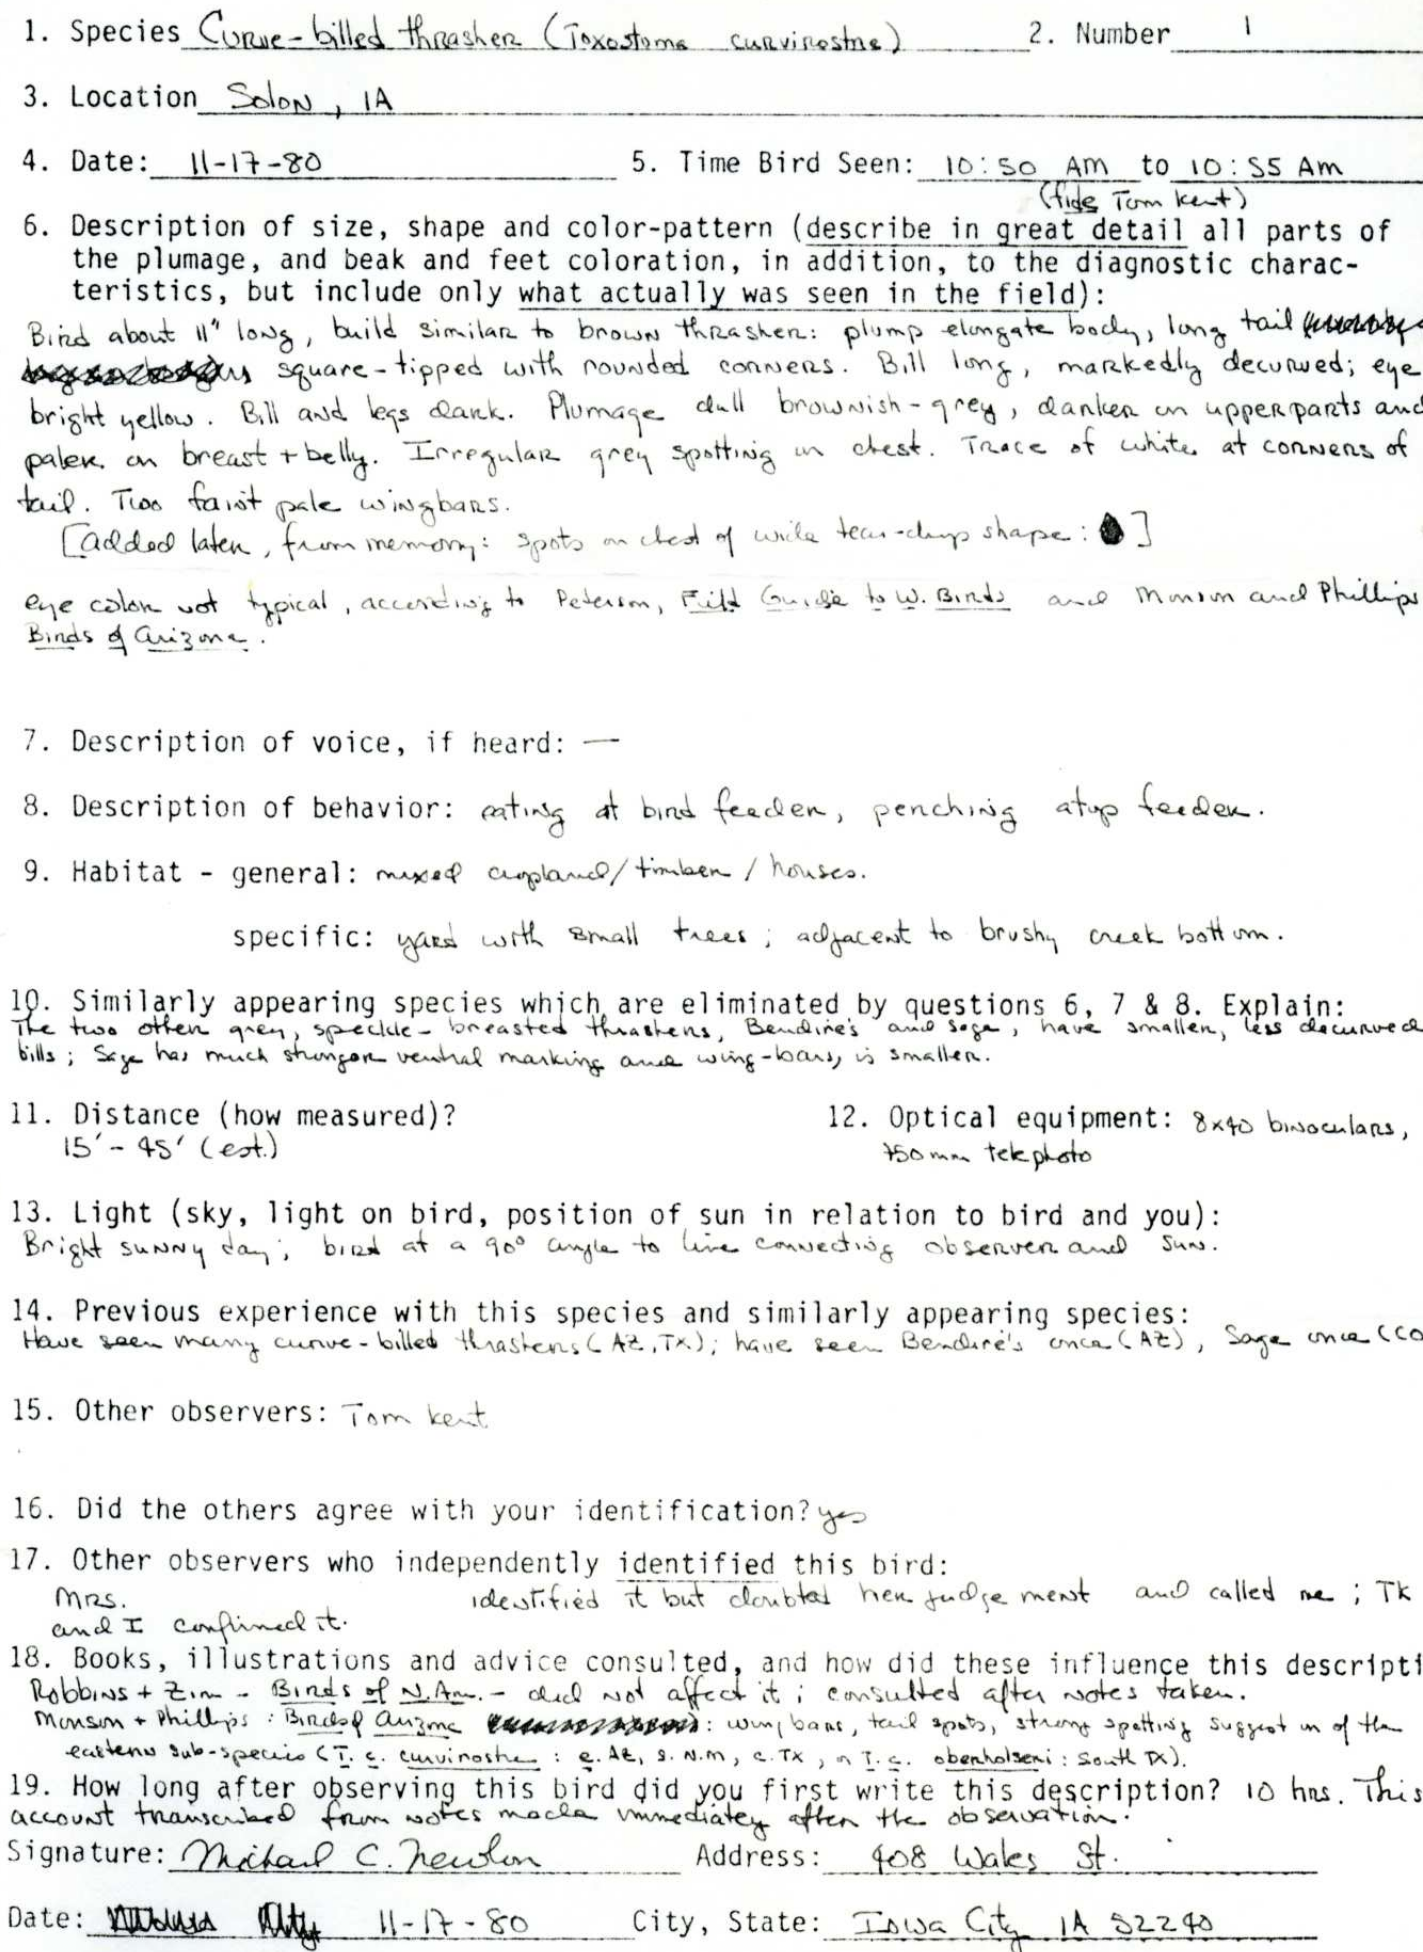 1. Species Curve-billed thrasher (Toxostoma curvirostre) 2. Number 1
3. Location Solon, IA
4. Date: 11-17-80 5. Time Bird Seen: 10:50 Am to 10:55 Am
(fide Tom Kent)
6. Description of size, shape and color-pattern (describe in great detail all parts of
the plumage, and beak and feet coloration, in addition, to the diagnostic charac-
teristics, but include only what actually was seen in the field):
Bird about 11" long, build similar to brown thrasher: plump elongate body, long tail
square-tipped with rounded corners. Bill long, markedly decurved; eye
bright yellow. Bill and legs dark. Plumage dull brownish-grey, darker on upperparts and
paler on breast + belly. Irregular grey spotting on chest. Trace of white at corners of
tail. Two faint pale wingbars.
[added later, from memory: spots on chest of wide tear-drop shape: ]
eye color not typical, according to Peterson, Field Guide to W. Birds and Monson and Phillips
Birds of Arizona.
7. Description of voice, if heard: —
8. Description of behavior: eating at bird feeder, perching atop feeder.
9. Habitat - general: mixed cropland/timber/houses.
specific: yard with small trees; adjacent to brushy creek bottom.
10. Similarly appearing species which are eliminated by questions 6, 7 & 8. Explain:
The two other grey, speckle-breasted thrashers, Bendire's and sage, have smaller, less decurved
bills; Sage has much stronger ventral marking and wing-bars, is smaller.
11. Distance (how measured)? 12. Optical equipment: 8x40 binoculars,
15'-45' (est.) 750mm telephoto
13. Light (sky, light on bird, position of sun in relation to bird and you):
Bright sunny day; bird at a 90° angle to line connecting observer and sun.
14. Previous experience with this species and similarly appearing species:
Have seen many curve-billed thrashers (AZ, TX); have seen Bendire's once (AZ), Sage once (CO
15. Other observers: Tom Kent
16. Did the others agree with your identification? yes
17. Other observers who independently identified this bird:
Mrs. identified it but doubted her judgement and called me; TK
and I confirmed it.
18. Books, illustrations and advice consulted, and how did these influence this descripti
Robbins + Zim - Birds of N. Am. - did not affect it; consulted after notes taken.
Monson + Phillips: Birds of Arizona : wing bars, tail spots, strong spotting suggest on of the
eastern sub-species (T. c. curvirostre: e. AZ, s. N.M, c. TX, or T. c. oberholseri: South TX).
19. How long after observing this bird did you first write this description? 10 hrs. This
account transcribed from notes made immediatey after the observation.
Signature: Michael C. Newlon Address: 408 Wales St.
Date: 11-17-80 City, State: Iowa City IA 52240